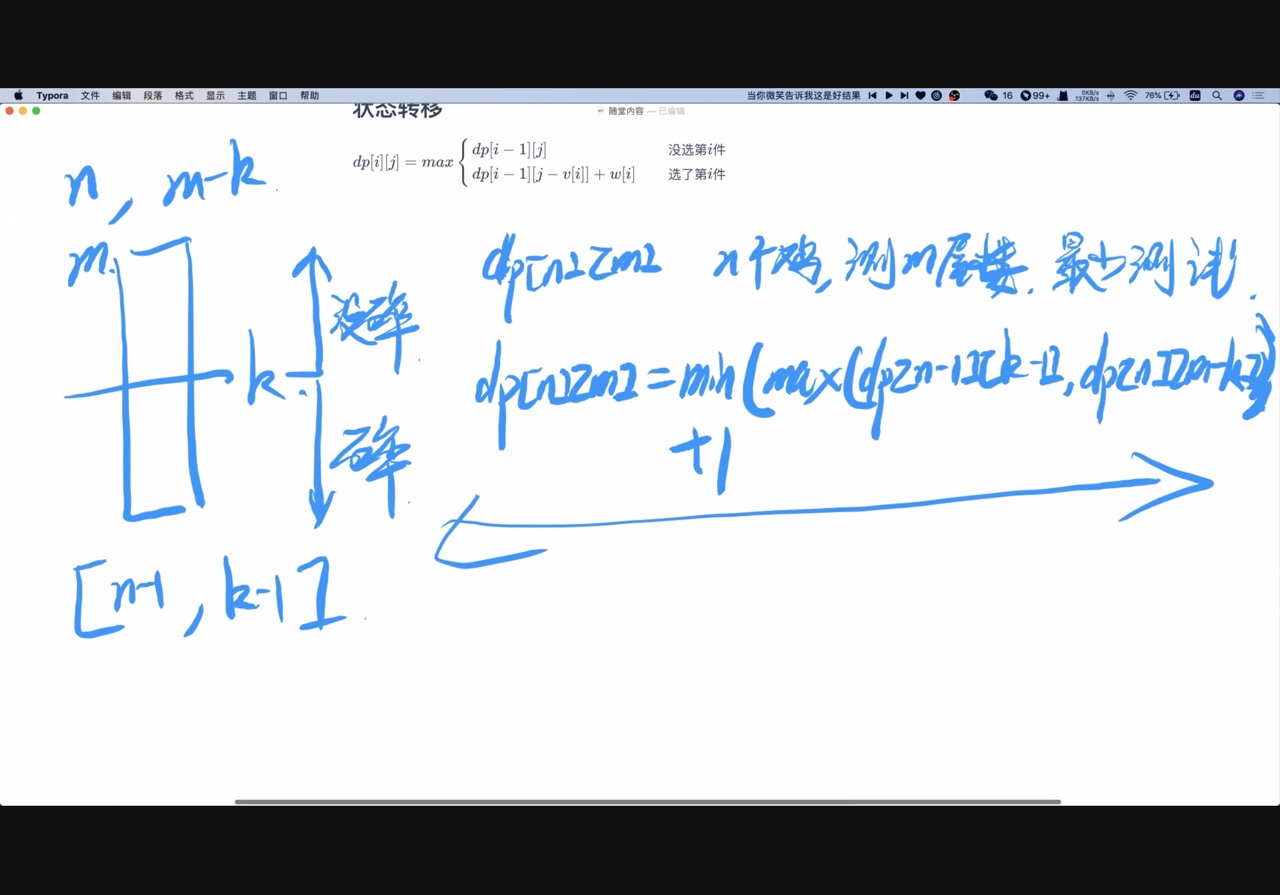 Typora 文件 编辑 段落 格式 显示 主题 窗口 帮助 当你微笑告诉我这是好结果 16 99+ 0KB/s 137KB/s 76% du
随堂内容 — 已编辑
状态转移
dp[i][j] = max { dp[i − 1][j] 没选第i件
dp[i − 1][j − v[i]] + w[i] 选了第i件
n, m-k
m
没碎
k
碎
[n-1, k-1]
dp[n][m] n个鸡,测m层楼,最少测试
dp[n][m] = min(max(dp[n-1][k-1], dp[n][m-k]))
+1